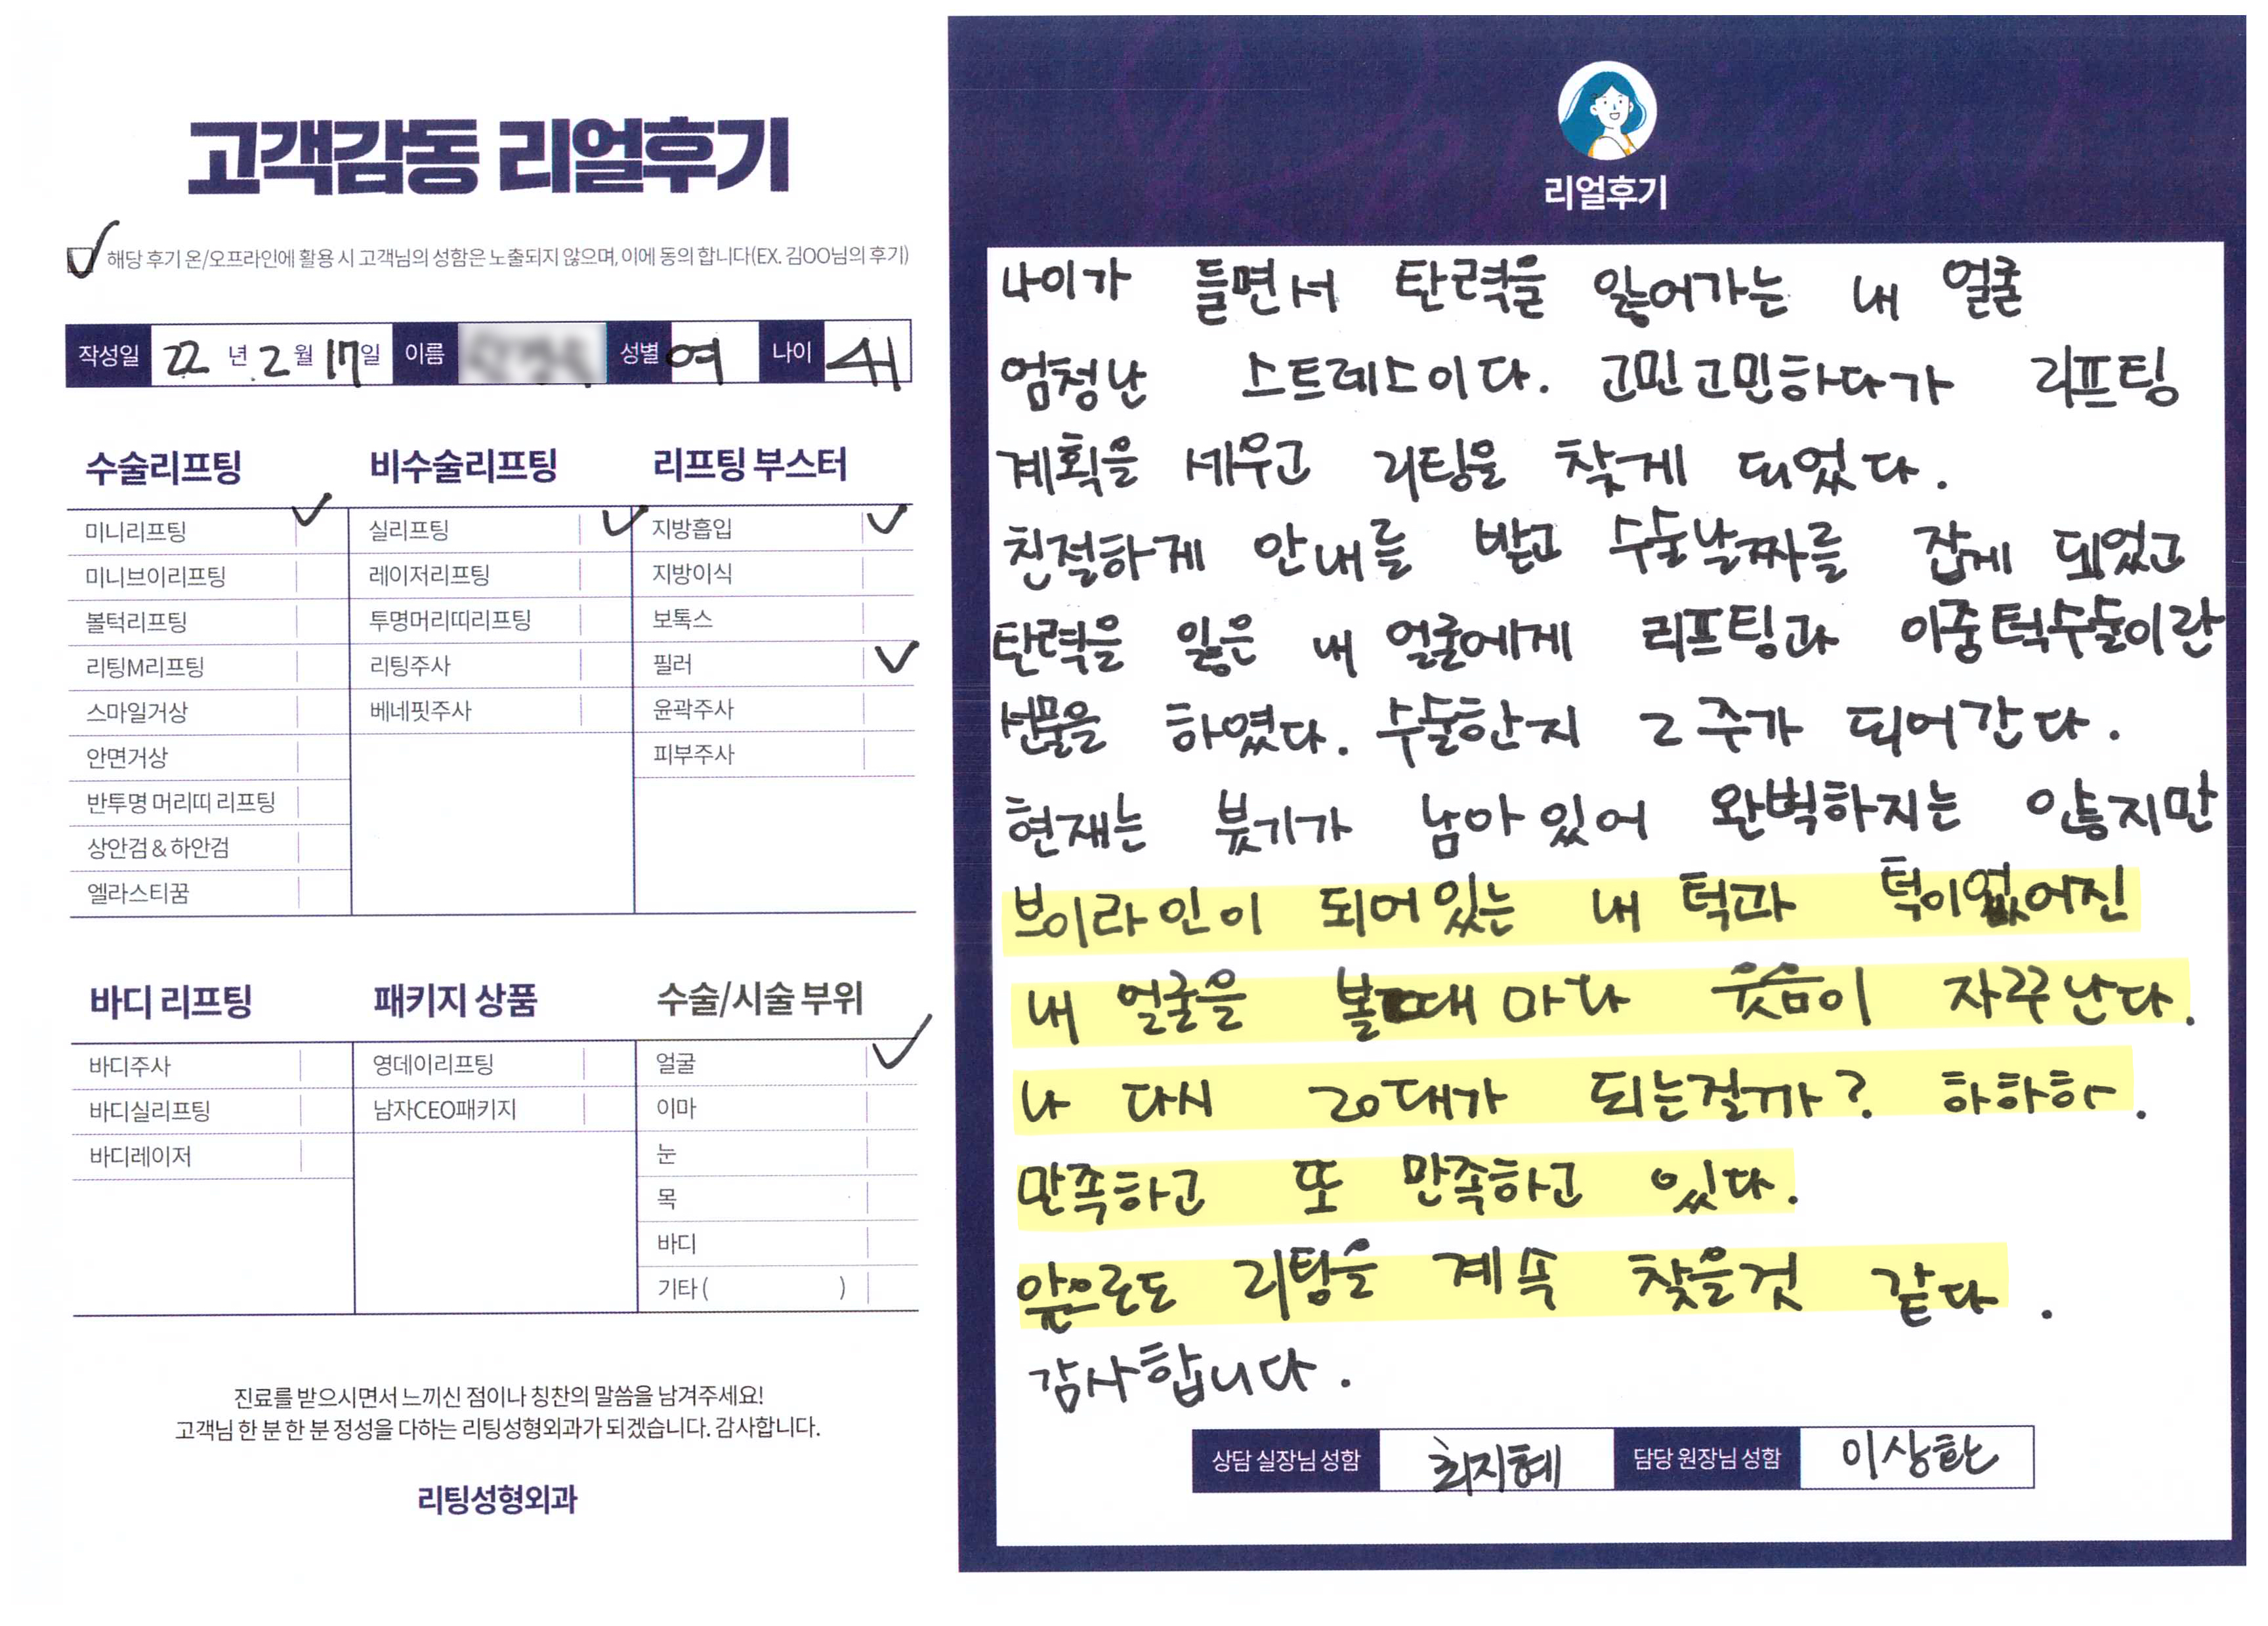 고객감동 리얼후기
해당 후기 온/오프라인에 활용 시 고객님의 성함은 노출되지 않으며, 이에 동의 합니다(EX. 김OO님의 후기)
작성일 22 년 2 월 17 일 이름 성별 여 나이
수술리프팅
미니리프팅
미니브이리프팅
볼턱리프팅
리팅M리프팅
스마일거상
안면거상
반투명 머리띠 리프팅
상안검 & 하안검
엘라스티꿈
비수술리프팅
실리프팅
레이저리프팅
투명머리띠리프팅
리팅주사
베네핏주사
리프팅 부스터
지방흡입
지방이식
보톡스
필러
윤곽주사
피부주사
바디 리프팅
바디주사
바디실리프팅
바디레이저
패키지 상품
영데이리프팅
남자CEO패키지
수술/시술 부위
얼굴
이마
눈
목
바디
기타 ( )
진료를 받으시면서 느끼신 점이나 칭찬의 말씀을 남겨주세요!
고객님 한 분 한 분 정성을 다하는 리팅성형외과가 되겠습니다. 감사합니다.
리팅성형외과
리얼후기
나이가 들면서 탄력을 잃어가는 내 얼굴
엄청난 스트레스이다. 고민고민하다가 리프팅
계획을 세우고 리팅을 찾게 되었다.
친절하게 안내를 받고 수술날짜를 잡게 되었고
탄력을 잃은 내 얼굴에게 리프팅과 이중턱수술이란
선물을 하였다. 수술한지 2주가 되어간다.
현재는 붓기가 남아있어 완벽하지는 않지만
브이라인이 되어있는 내 턱과 턱이없어진
내 얼굴을 볼때마다 웃음이 자꾸난다.
나 다시 20대가 되는걸까? 하하하.
만족하고 또 만족하고 있다.
앞으로도 리팅을 계속 찾을것 같다.
감사합니다.
상담 실장님 성함 최지혜 담당 원장님 성함 이상환